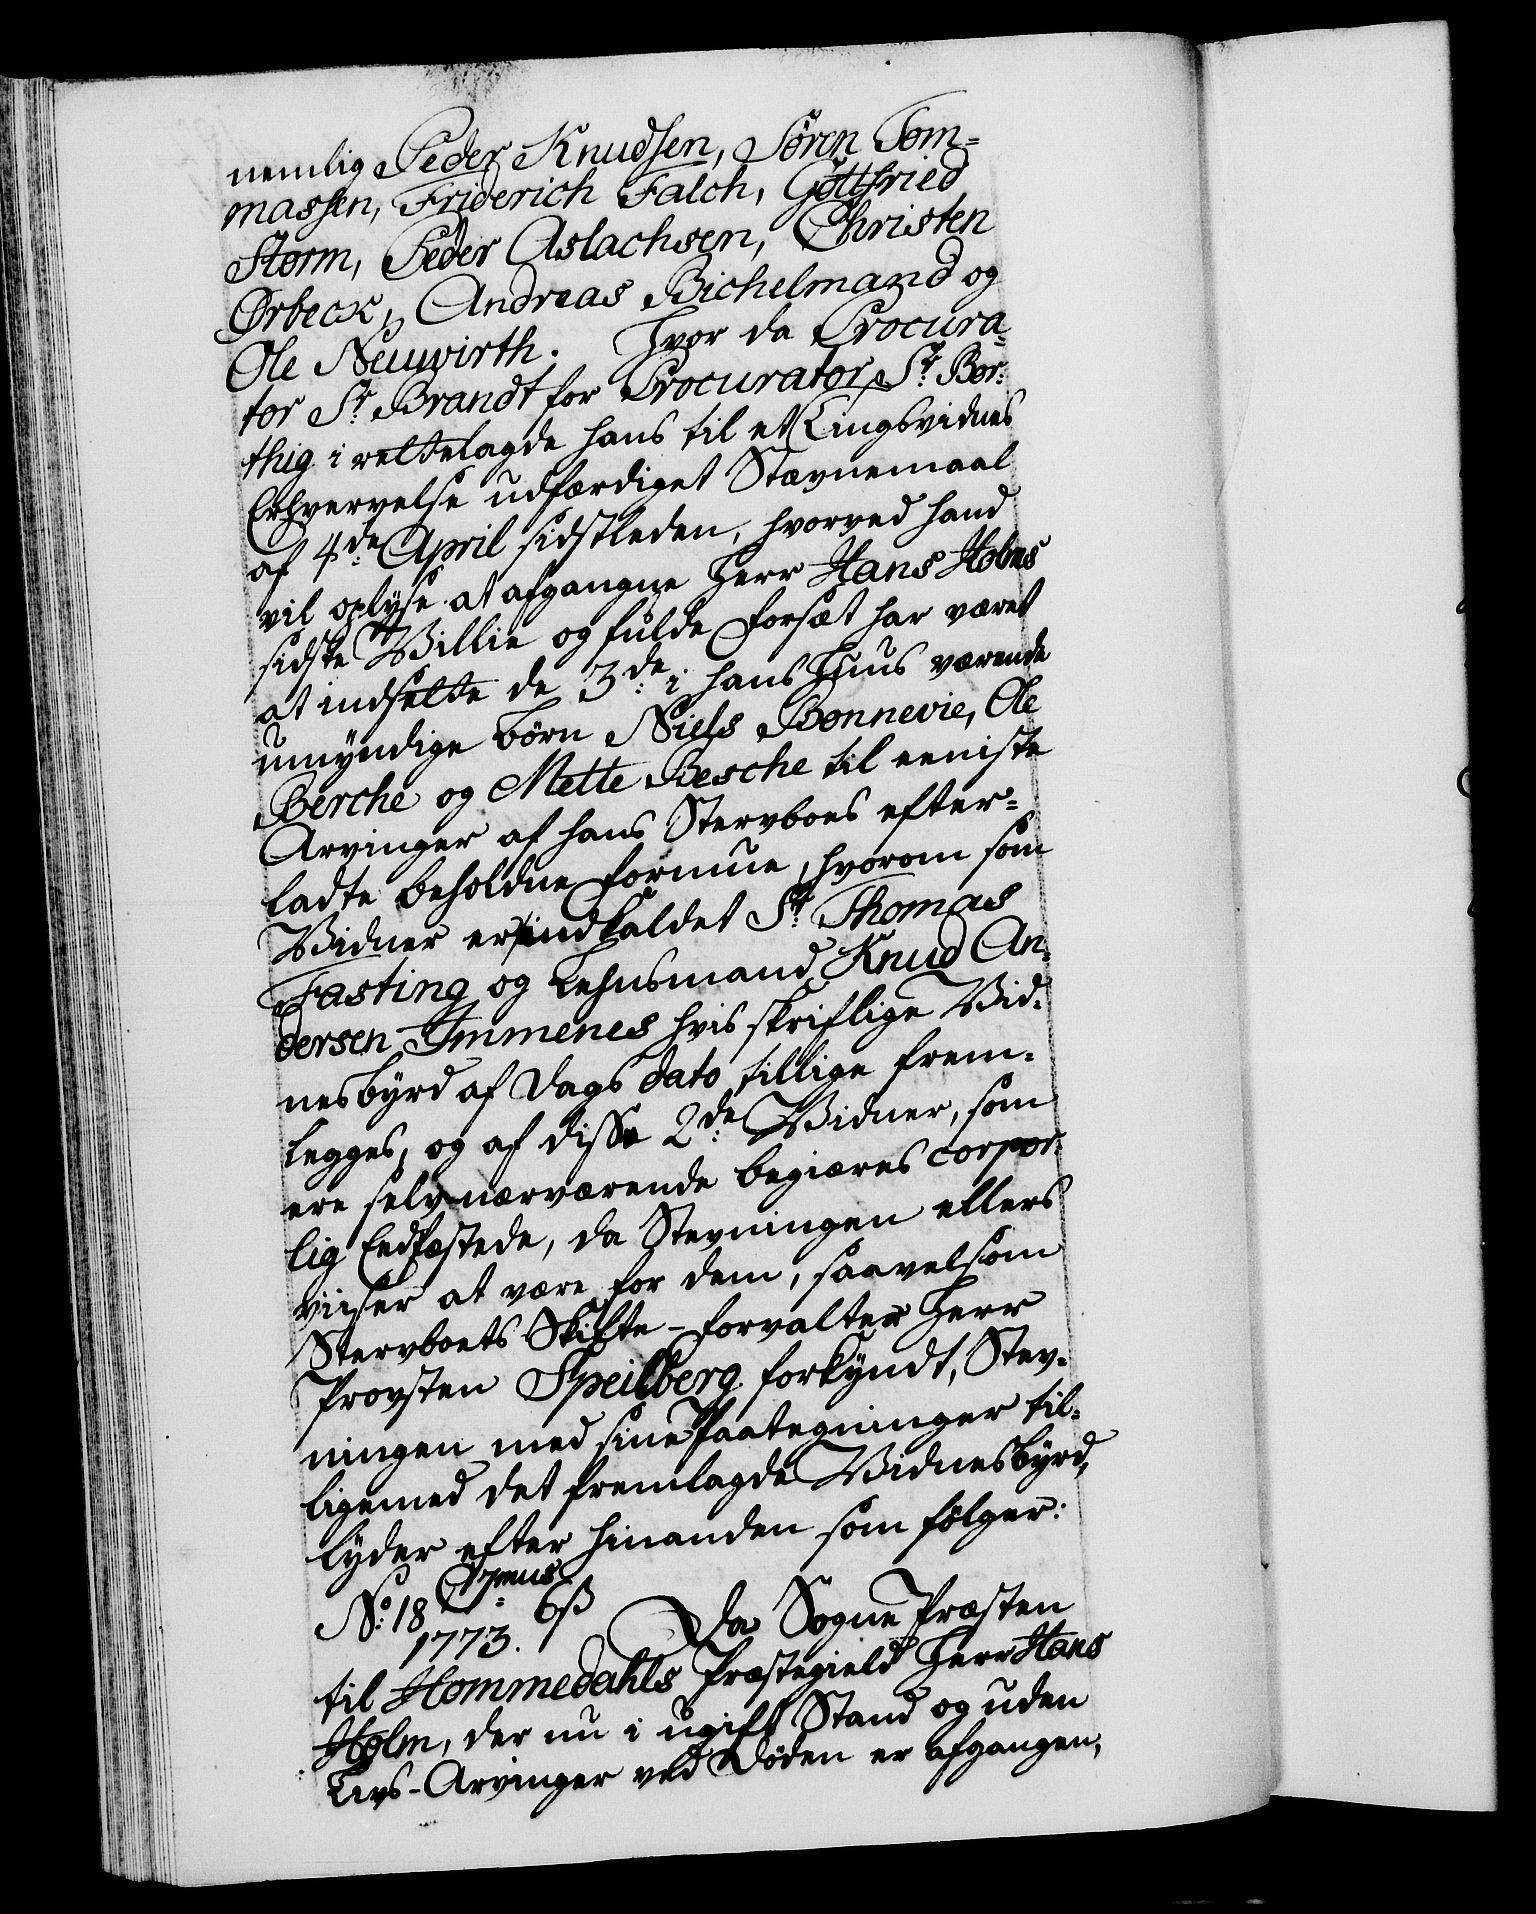 nemlig Peder Knudsen, Søren Tom-
massen, Friderich Falch, Gottfried
Storm, Peder Aslachsen, Christen
Ørbeck, Andreas Bichelmand og
Ole Neuwirth. Hvor da Procura-
tor Sr. Brandt for Procurator Sr. Bor-
thig i rettelagde hans til et Tingsvidnes
Erhvervelse udfærdiget Stævnemaal
af 4de: April sidstleden, hvorved hand
vil oplyse at afgangne Herr Hans Holms
sidste Villie og fulde Forsæt har været
at indsette de 3de: i hans Huus værende
umyndige børn Niels Bonnevie, Ole
Berche og Mette Besche til eeniste
Arvinger af hans Stervboes efter-
ladte beholdne Formue, hvorom som
Vidner er indkaldet Sr. Thomas
Fasting og Lehnsmand Knud An-
dersen Immenes hvis skriftlige Vid-
nesbyrd af Dags dato tillige frem-
legges, og af disse 2de: Vidner, som
ere selv nærværende begiæres corpor-
lig Eedfæstede, da Stevningen ellers
viiser at være for dem, saavelsom
Stervboets Skifte-forvalter Herr
Provsten Speilberg forkyndt, Stev-
ningen med sine Paategninger til-
ligemed det fremlagde Vidnesbyrd,
lyder efter hinanden som følger:
No: 18 6ß
1773. Da Sogne Præsten
til Hommedahls Præstegield Herr Hans
Holm, der nu i ugift Stand og uden
Livs-Arvinger ved Døden er afgangen,